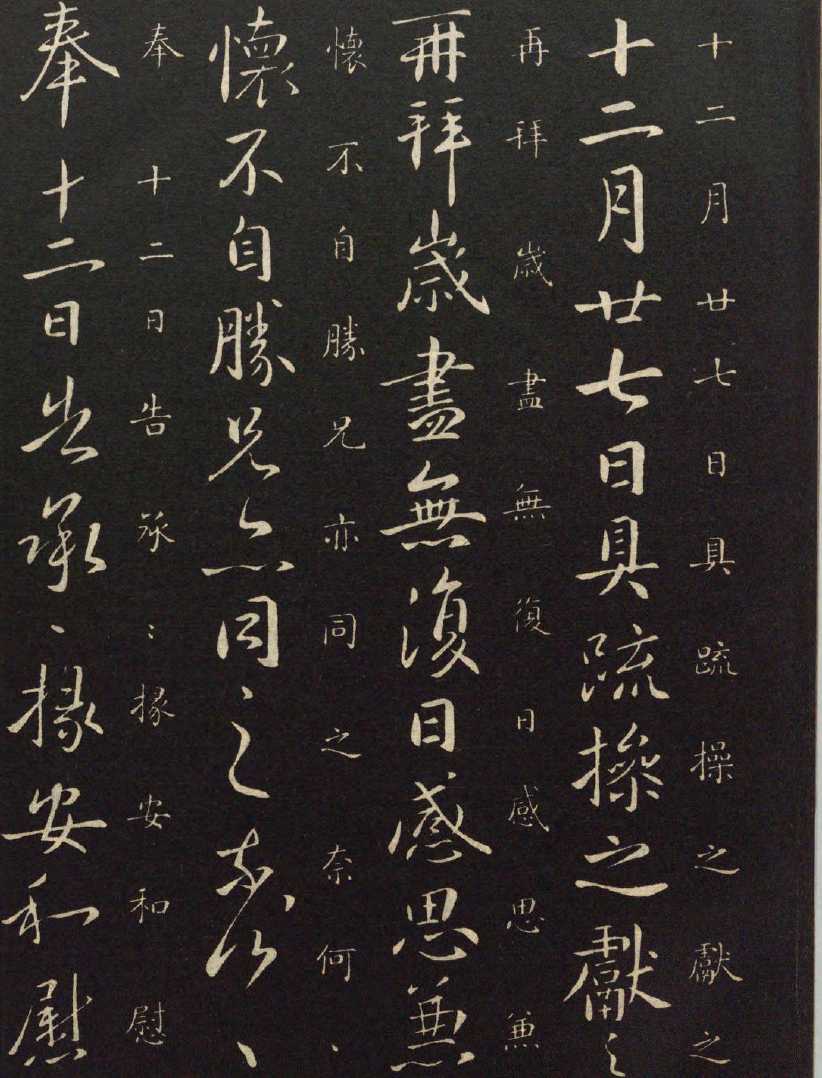 十二月廿七日具䟽操之獻之
十二月廿七日具䟽操之獻之
再拜歲盡無復日感思兼
再拜歲盡無復日感思兼
懷不自勝兄亦同之奈何、
懷不自勝兄亦同之奈何、
奉十二日告承：掾安和慰
奉十二日告承、掾安和慰